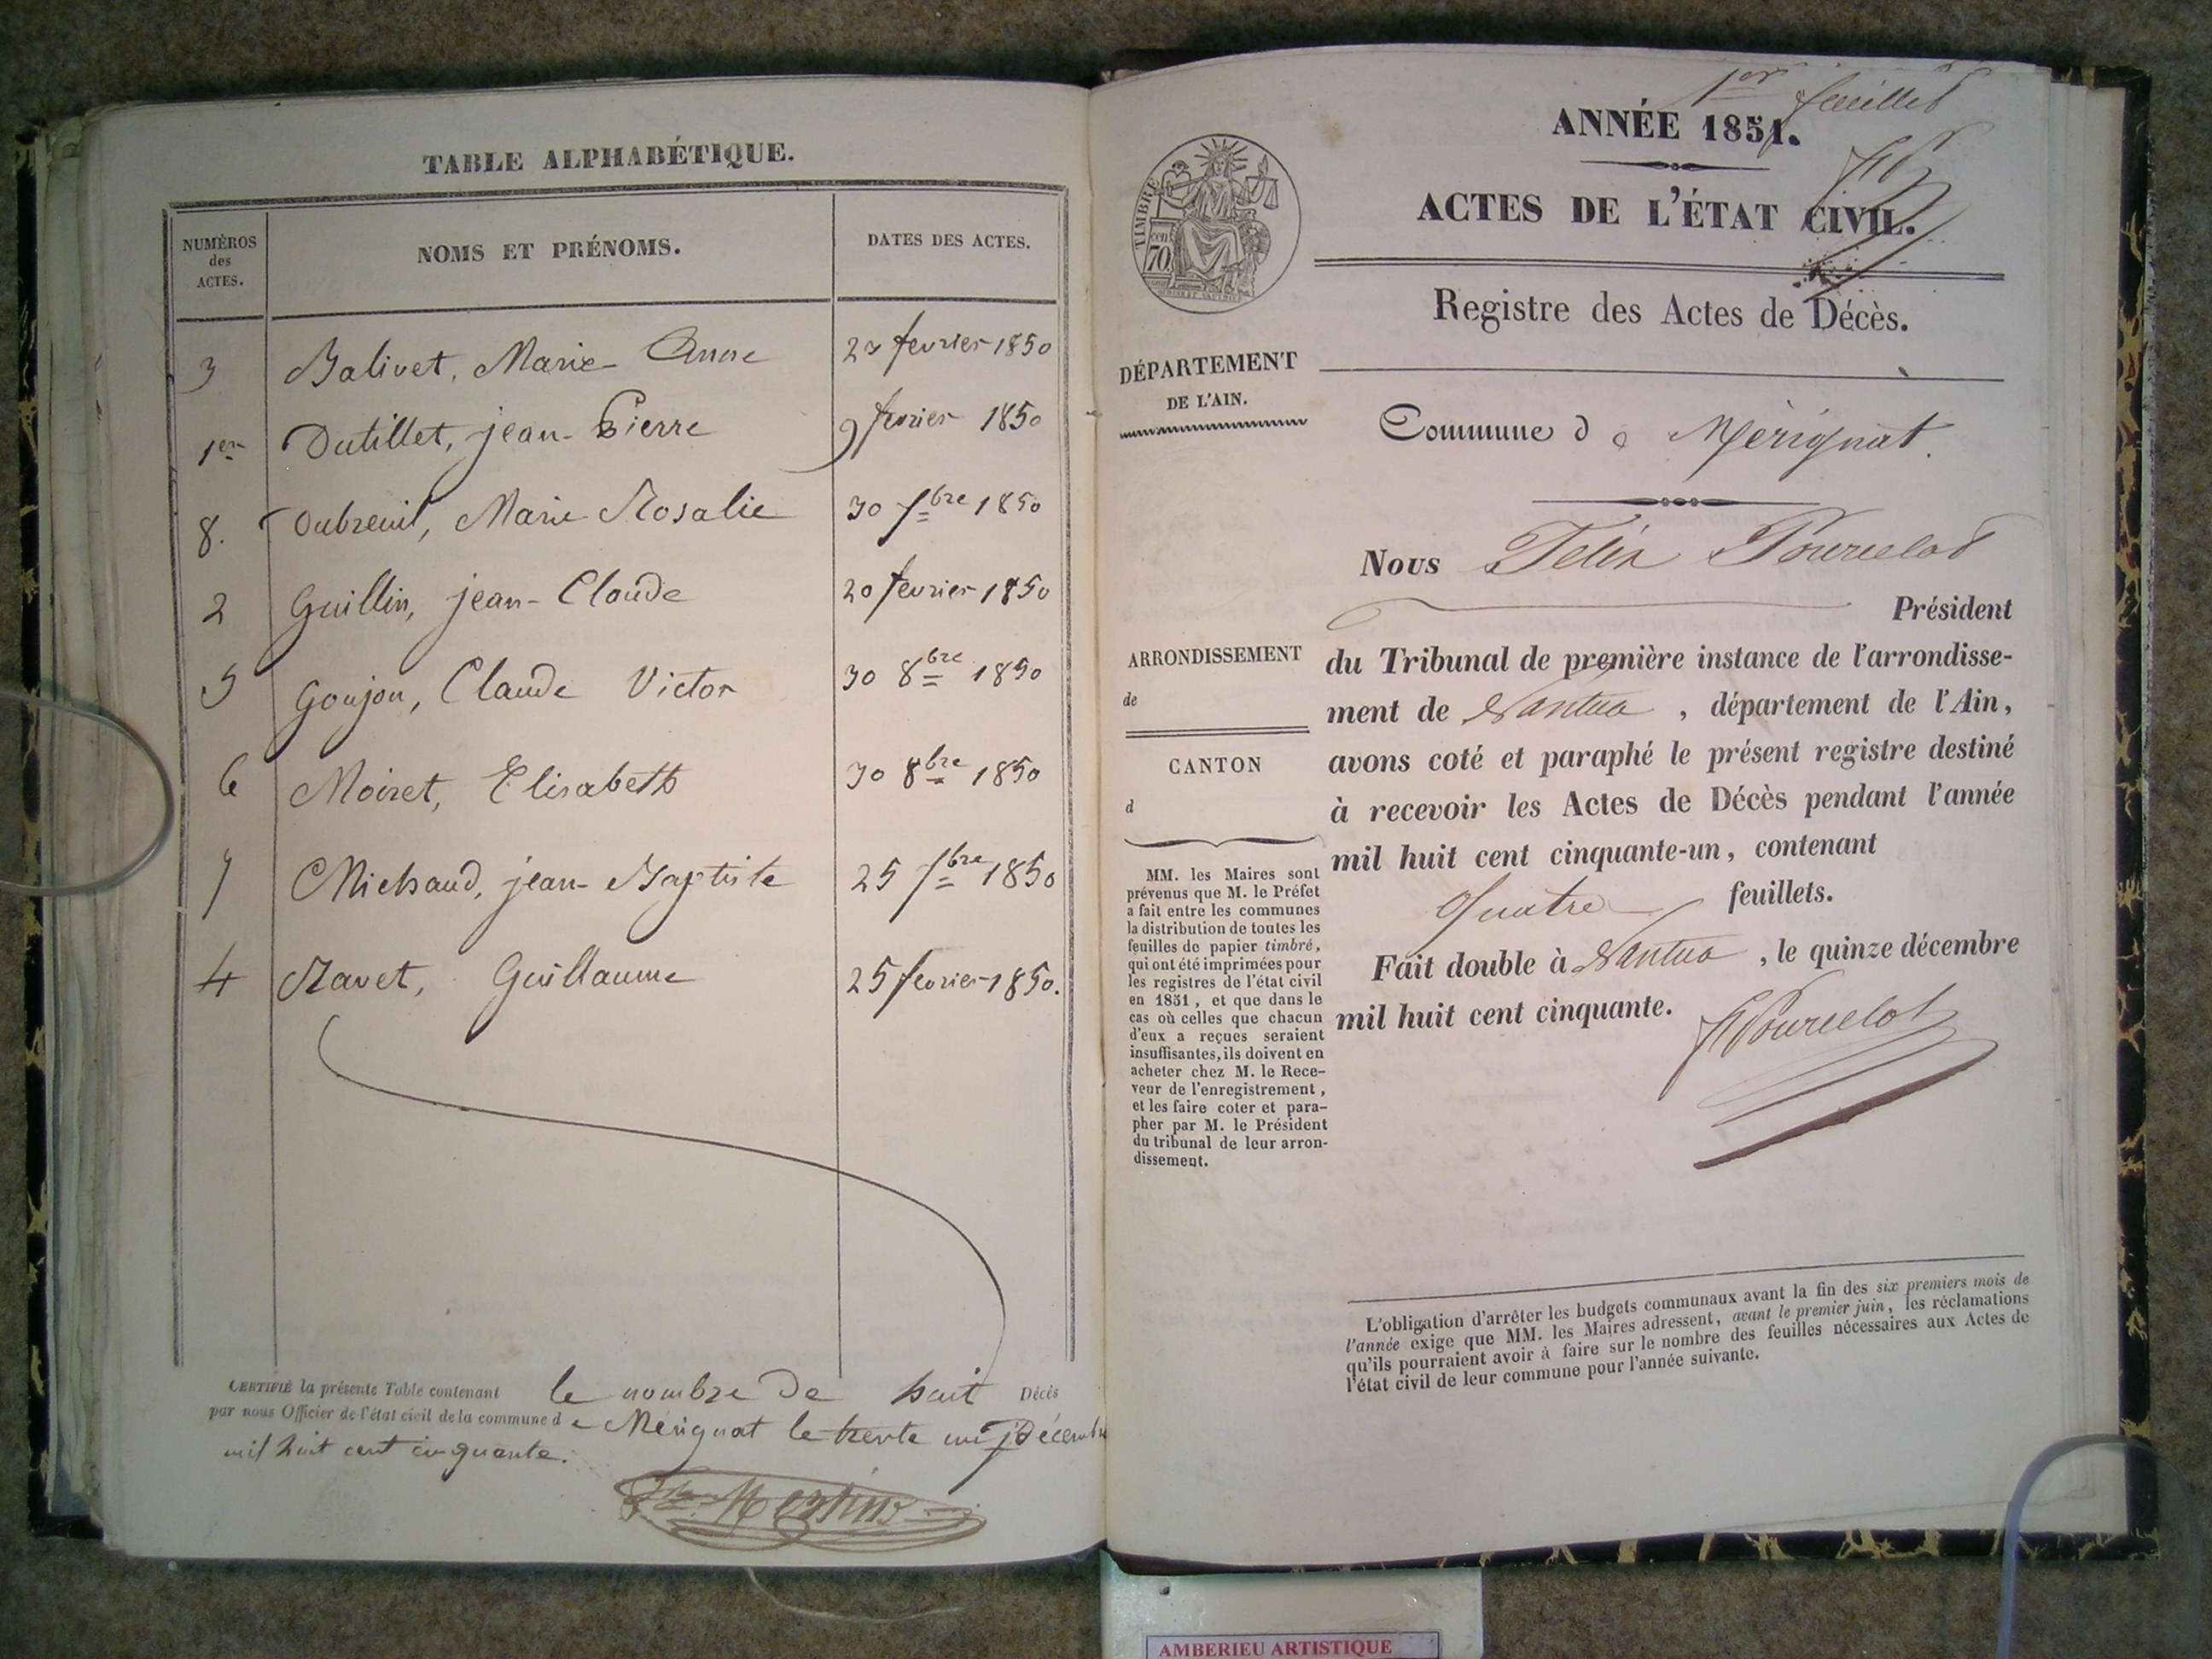 TABLE ALPHABÉTIQUE.
NUMÉROS des ACTES. NOMS ET PRÉNOMS. DATES DES ACTES.
3 Balivet, Marie Anne 23 fevrier 1850
1er Dutillet, jean-Pierre 9 fevrier 1850
8. Dubreuil, Marie Rosalie 30 1850
2 Guillin, jean-Claude 20 fevrier 1850
5 Goujon, Claude Victor 30 8bre 1850
6 Moiret, Elisabeth 30 8bre 1850
7 Michaud, jean-Baptiste 25 1850
4 Ravet, Guillaume 25 fevrier 1850.
CERTIFIÉ la présente Table contenant le nombre de huit Décès
par nous Officier de l'état civil de la commune de Mérignat le trente un Décembre
mil huit cent cinquante.
1er feuillet
ANNÉE 1851.
ACTES DE L'ÉTAT CIVIL.
TIMBRE
70
cen
Registre des Actes de Décès.
DÉPARTEMENT
DE L'AIN.
Commune de Mérignat.
Nous Félix Pourcelot
Président
ARRONDISSEMENT
de
CANTON
d
du Tribunal de première instance de l'arrondisse-
ment de Nantua, département de l'Ain,
avons coté et paraphé le présent registre destiné
à recevoir les Actes de Décès pendant l'année
mil huit cent cinquante-un, contenant
Quatre feuillets.
Fait double à Nantua, le quinze décembre
mil huit cent cinquante.
FPourcelot
MM. les Maires sont
prévenus que M. le Préfet
a fait entre les communes
la distribution de toutes les
feuilles de papier timbré,
qui ont été imprimées pour
les registres de l'état civil
en 1851, et que dans le
cas où celles que chacun
d'eux a reçues seraient
insuffisantes, ils doivent en
acheter chez M. le Rece-
veur de l'enregistrement,
et les faire coter et para-
pher par M. le Président
du tribunal de leur arron-
dissement.
L'obligation d'arrêter les budgets communaux avant la fin des six premiers mois de
l'année exige que MM. les Maires adressent, avant le premier juin, les réclamations
qu'ils pourraient avoir à faire sur le nombre des feuilles nécessaires aux Actes de
l'état civil de leur commune pour l'année suivante.
AMBERIEU ARTISTIQUE